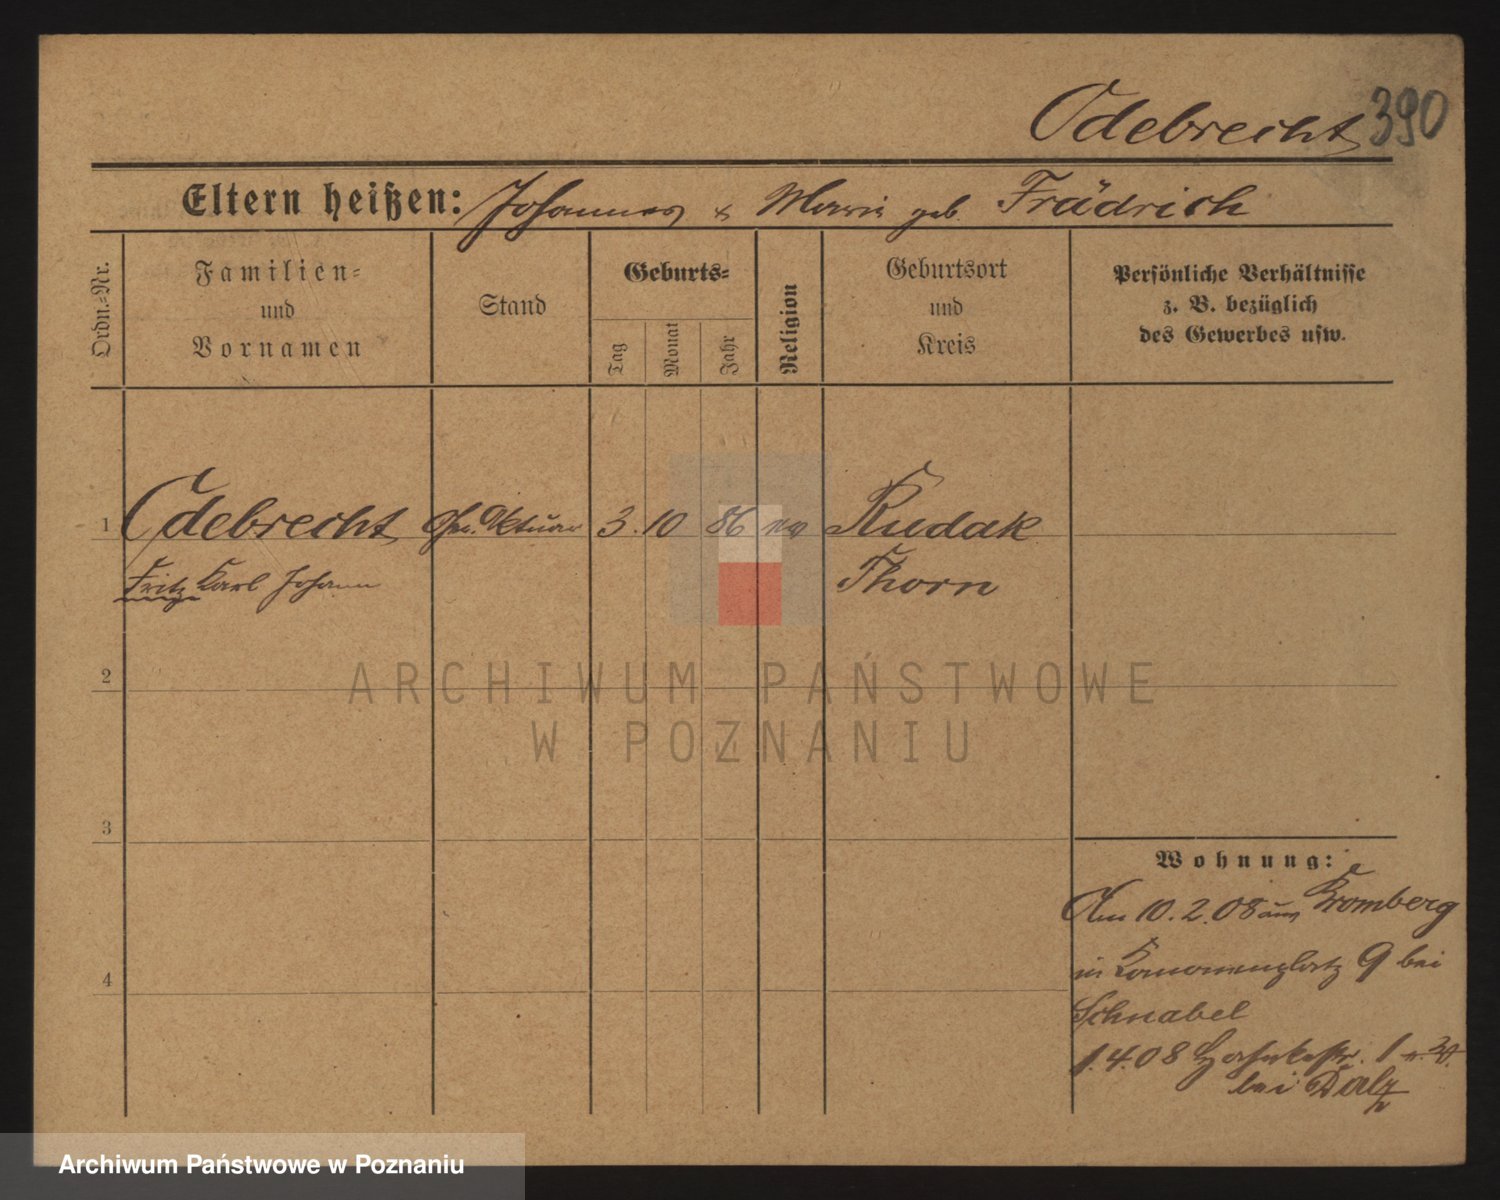 Odebrecht 390
Eltern heißen: Johannes & Marie geb. Frädrich
Ordn.-Nr.
Familien-
und
Vornamen
Stand
Geburts-
Tag
Monat
Jahr
Religion
Geburtsort
und
Kreis
Persönliche Verhältnisse
z. B. bezüglich
des Gewerbes usw.
1 Odebrecht Ger. Aktuar 3. 10 86 ev Rudak
Fritz Karl Johann Thorn
2
3
4
Wohnung:
Am 10.2.08 aus Bromberg
in 9 bei
Schnabel
1.4.08 1
bei
ARCHIWUM PAŃSTWOWE
W POZNANIU
Archiwum Państwowe w Poznaniu